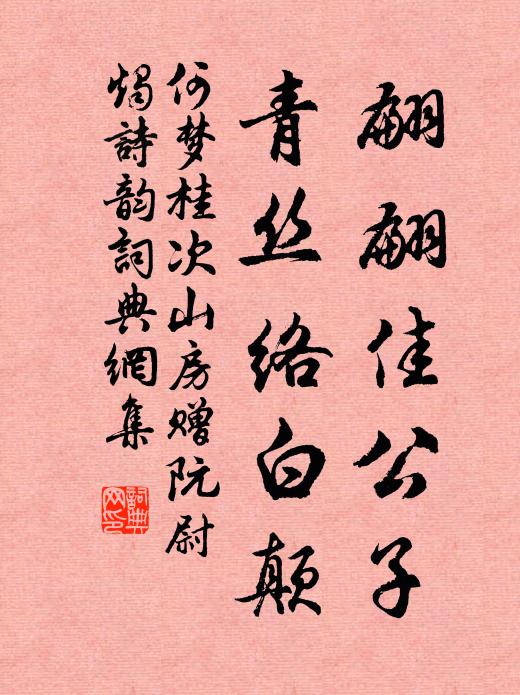 翩翩佳公子
青丝络白颠
何梦桂次山房赠阮尉
烛詩韵詞典網集
詞典
网印